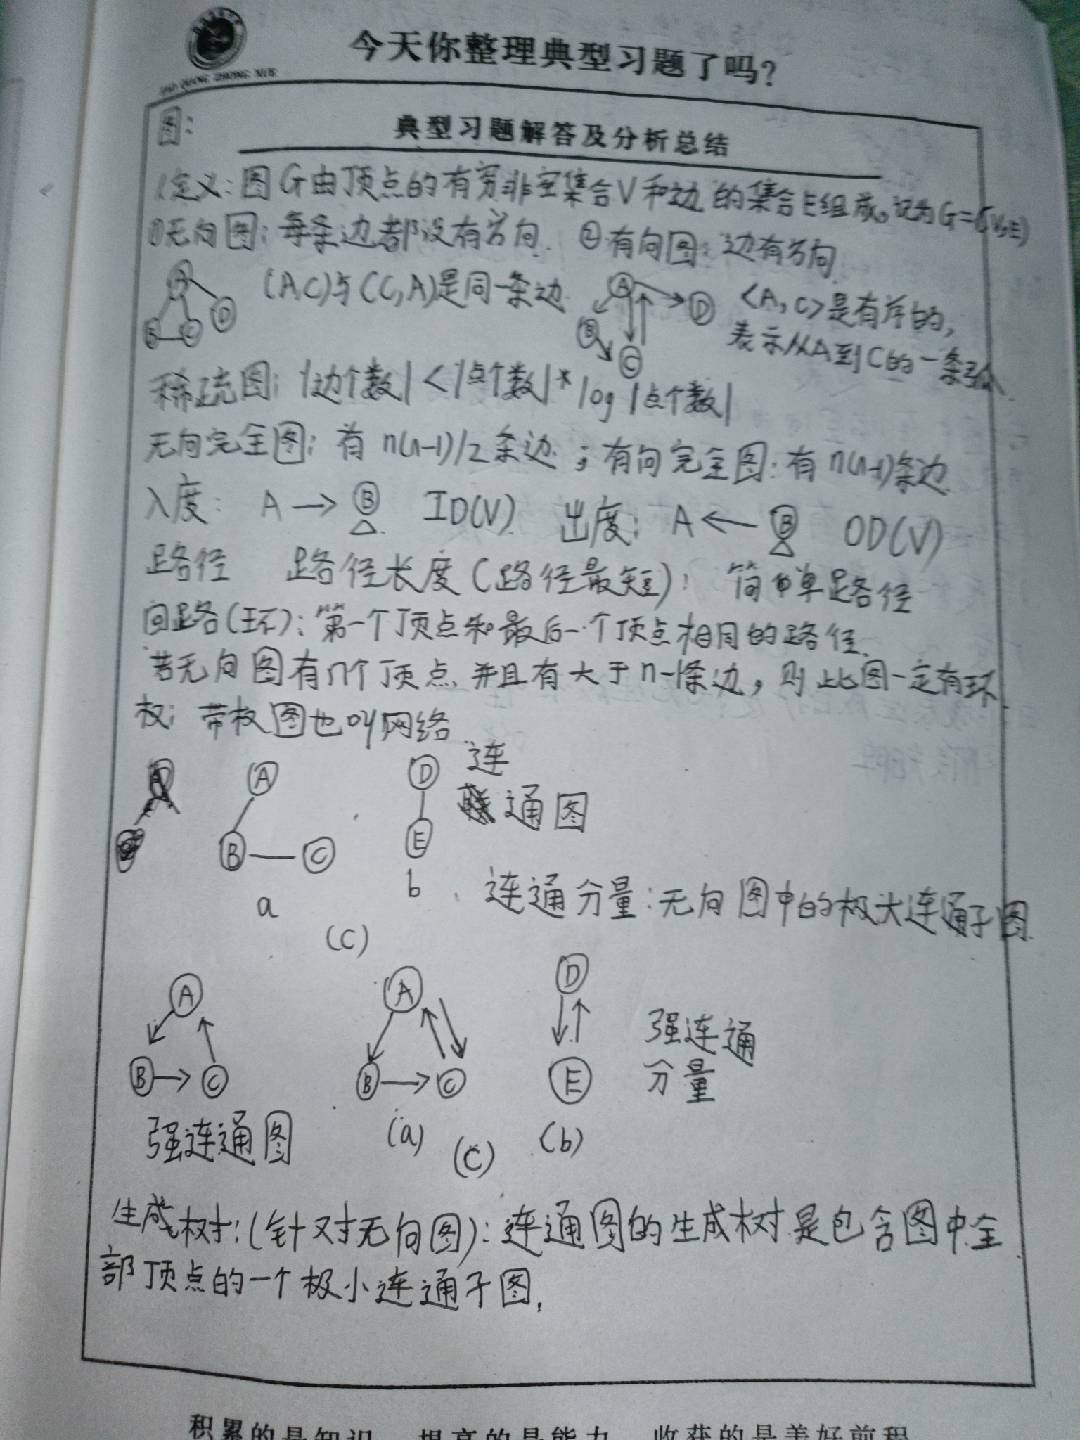 今天你整理典型习题了吗?
图:
典型习题解答及分析总结
1定义:图G由顶点的有穷非空集合V和边的集合E组成。记为G=(V,E)
①无向图:每条边都没有方向. ②有向图:边有方向
A
B C D
(A,C)与(C,A)是同一条边
A
B C D
<A,C>是有序的,
表示从A到C的一条边
稀疏图: |边个数| < |点个数| * log |点个数|
无向完全图: 有 n(n-1)/2 条边 ; 有向完全图: 有 n(n-1)条边
入度: A → B ID(V) 出度: A ← B OD(V)
路径 路径长度(路径最短): 简单路径
回路(环): 第一个顶点和最后一个顶点相同的路径.
若无向图有n个顶点 并且有大于n-1条边, 则此图一定有环
权: 带权图也叫网络
A D 连
通图
B — C E
a b
连通分量:无向图中的极大连通子图.
(C)
A A D
强连通
B → C B → C E
分量
强连通图 (a) (b)
(C)
生成树:(针对无向图): 连通图的生成树是包含图中全
部顶点的一个极小连通子图.
积累的是知识 提高的是能力 收获的是美好前程